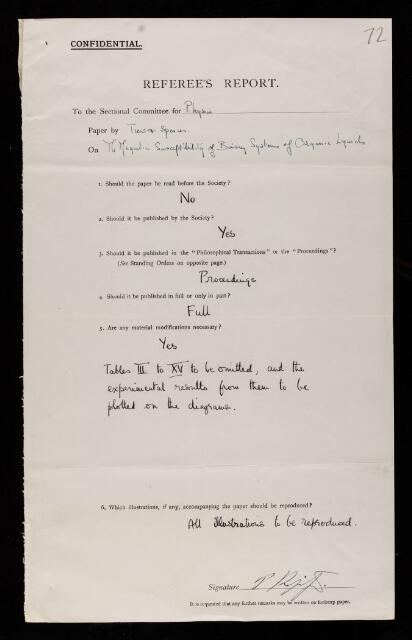 72
CONFIDENTIAL.
REFEREE'S REPORT.
To the Sectional Committee for Physics
Paper by Trevor
On The Magnetic Susceptibility of Binary Systems of Organic Liquids.
1. Should the paper be read before the Society?
No
2. Should it be published by the Society?
Yes
3. Should it be published in the "Philosophical Transactions" or the "Proceedings"?
(See Standing Orders on opposite page.)
Proceedings
4. Should it be published in full or only in part?
Full
5. Are any material modifications necessary?
Yes
Tables III to XV to be omitted, and the
experimental results from them to be
plotted on the diagrams.
6. Which illustrations, if any, accompanying the paper should be reproduced?
All Illustrations to be reproduced.
Signature
It is requested that any further remarks may be written on foolscap paper.